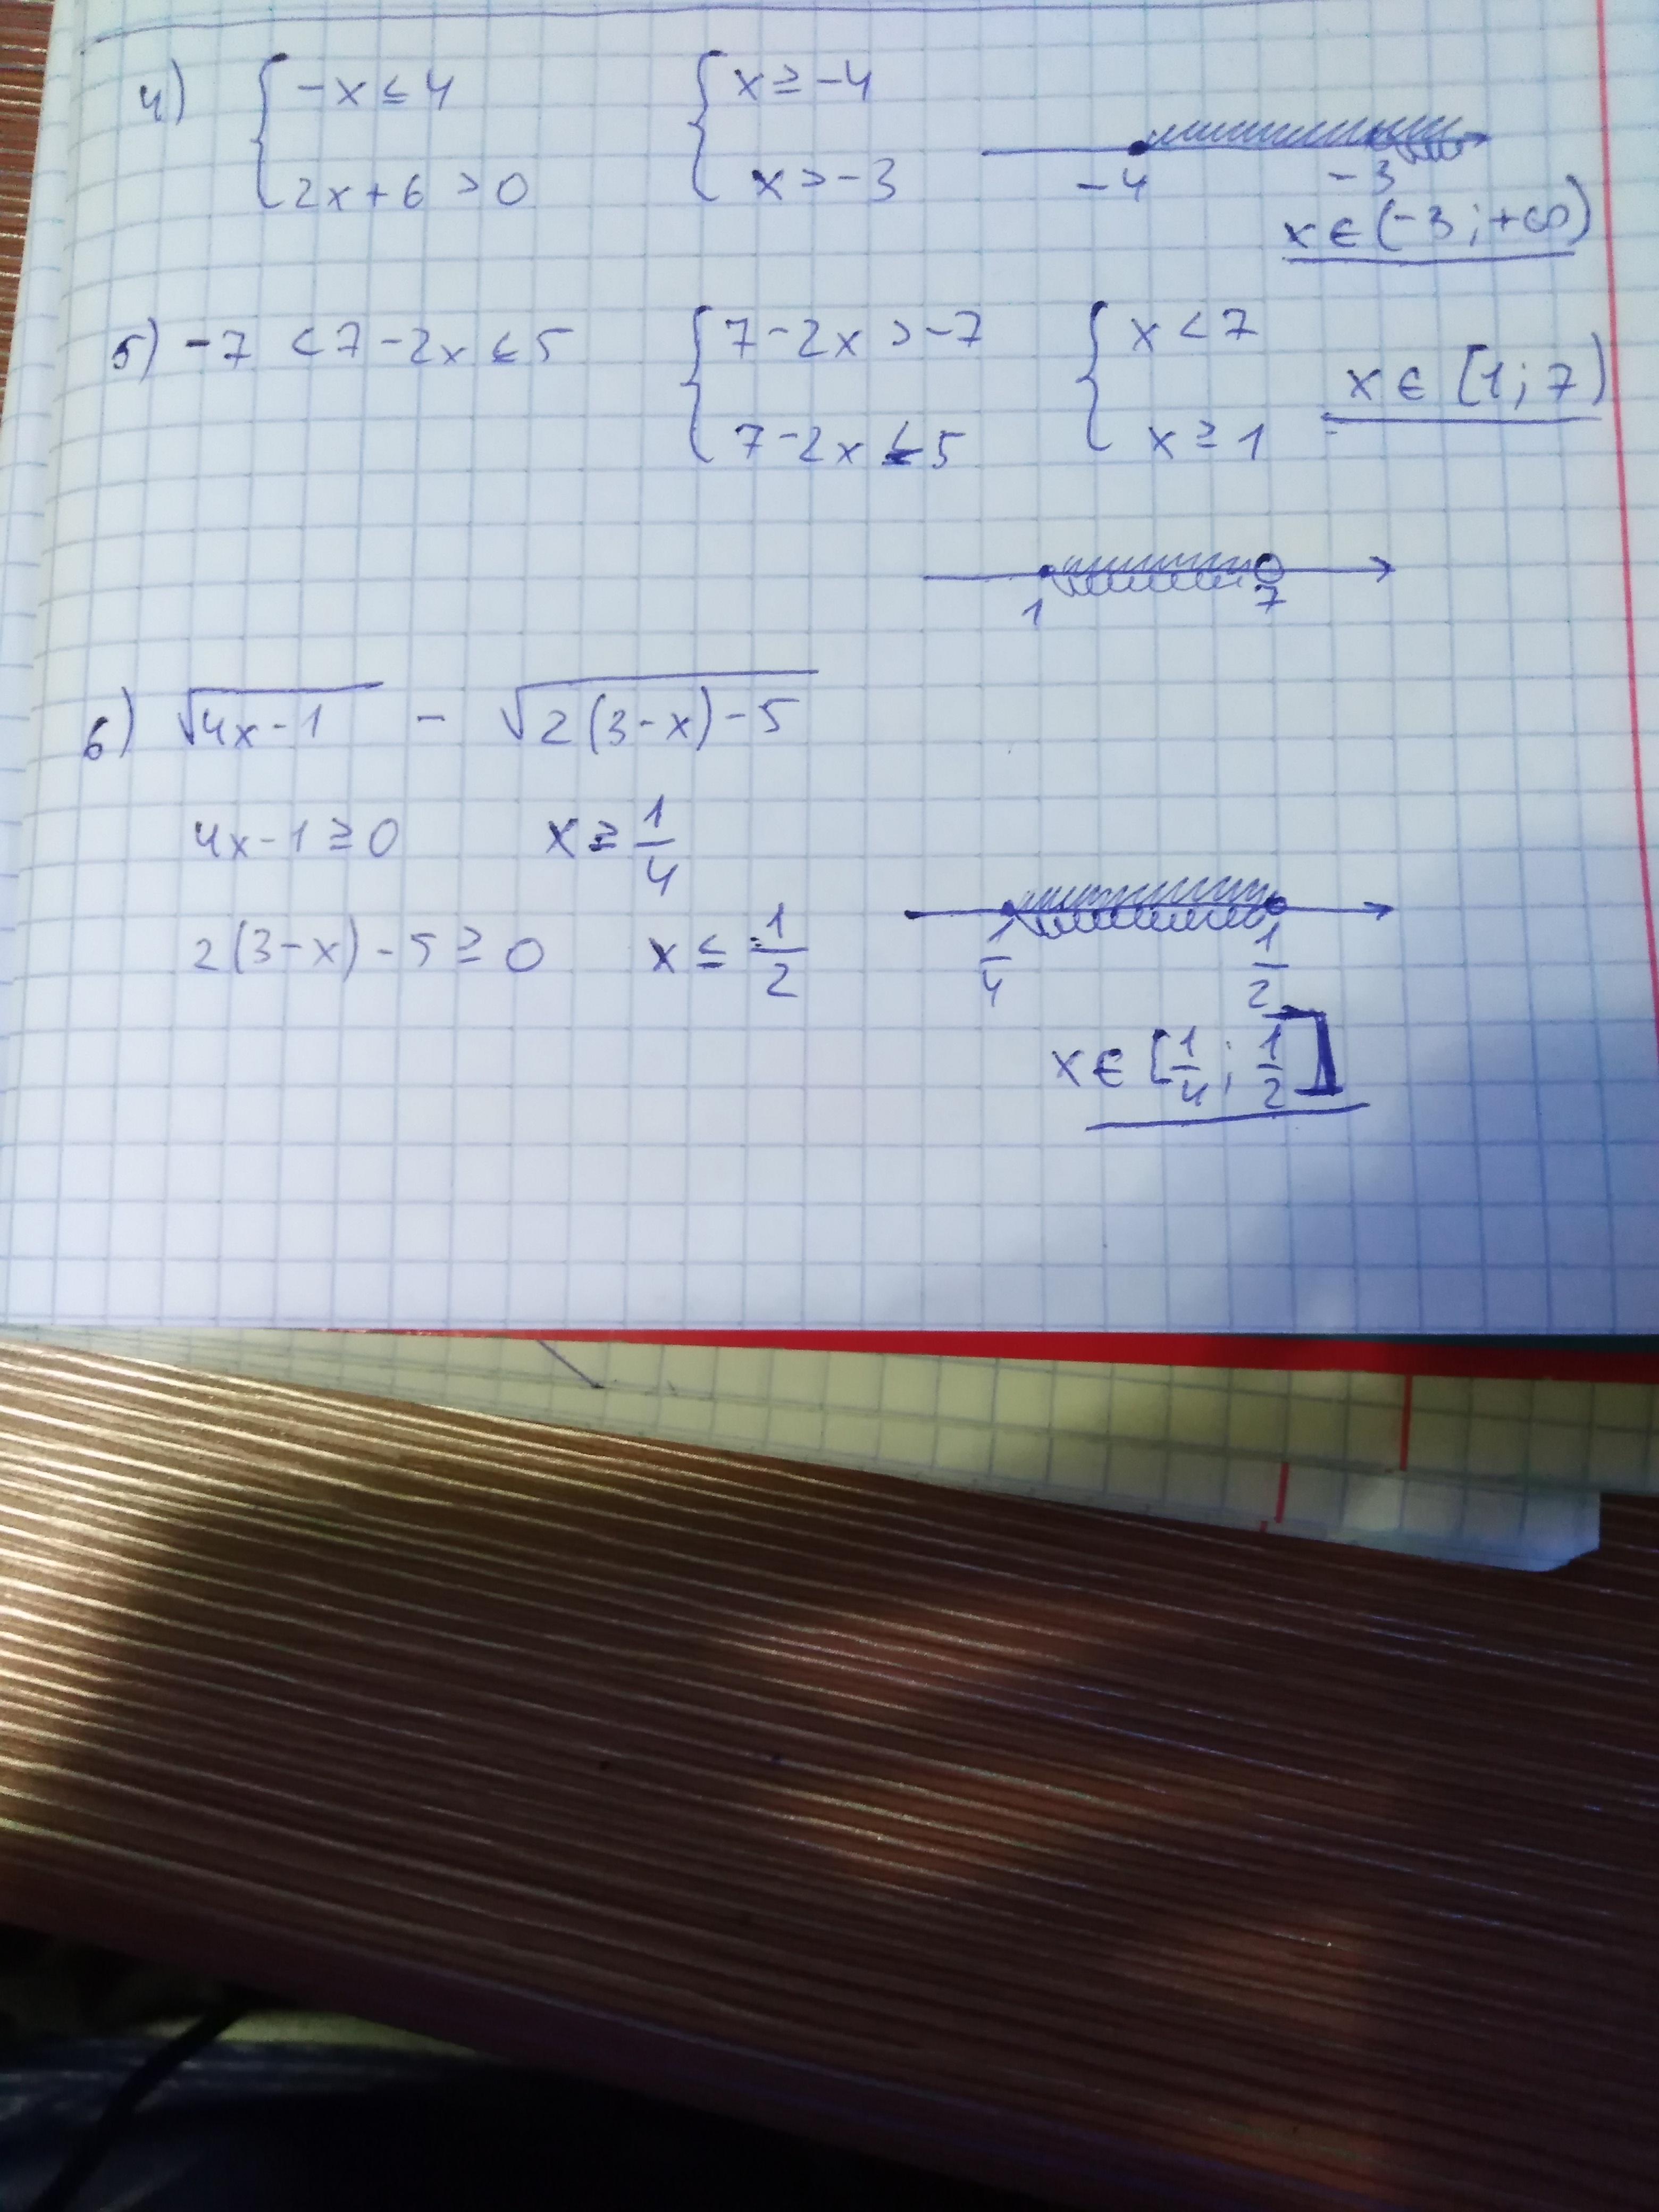 4) { -x ≤ 4 { x ≥ -4
2x + 6 > 0 x > -3 -4 -3
x ∈ (-3; +∞)
5) -7 < 7 - 2x ≤ 5 { 7 - 2x > -7 { x < 7 x ∈ [1; 7)
7 - 2x ≤ 5 x ≥ 1
1 7
6) √4x - 1 - √2(3 - x) - 5
4x - 1 ≥ 0 x ≥ 1/4
2(3 - x) - 5 ≥ 0 x ≤ 1/2 1/4 1/2
x ∈ [1/4; 1/2]